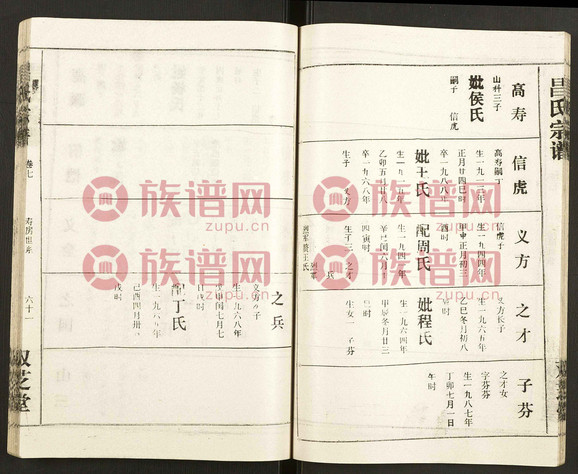 吕氏宗谱
高寿
山科三子
妣侯氏
嗣子 信虎
信虎
高寿嗣子
生一九二三年
正月廿四巳时
卒一九八八年
妣王氏
乙卯五月廿八
卒一九六八年
生子 义方
义方
信虎子
生一九四四年
甲申正月初三
酉时
配周氏
生一九四一年
辛巳闰六月
四寅时
生子二 之才
之兵
之才
义方长子
生一九六五年
乙巳冬月初八
妣程氏
生一九六四年
甲辰冬月廿三
生女一 子芬
子芬
之才女
字芬芬
生一九八七年
丁卯七月一日
午时
之兵
义方次子
生一九六八年
戊申闰七月七
配丁氏
生一九六九年
己酉四月卅
戌时
卷七
寿房世系
六十一
双芝堂
族谱网
zupu.cn
族谱网
zupu.cn
族谱网
zupu.cn
族谱网
zupu.cn